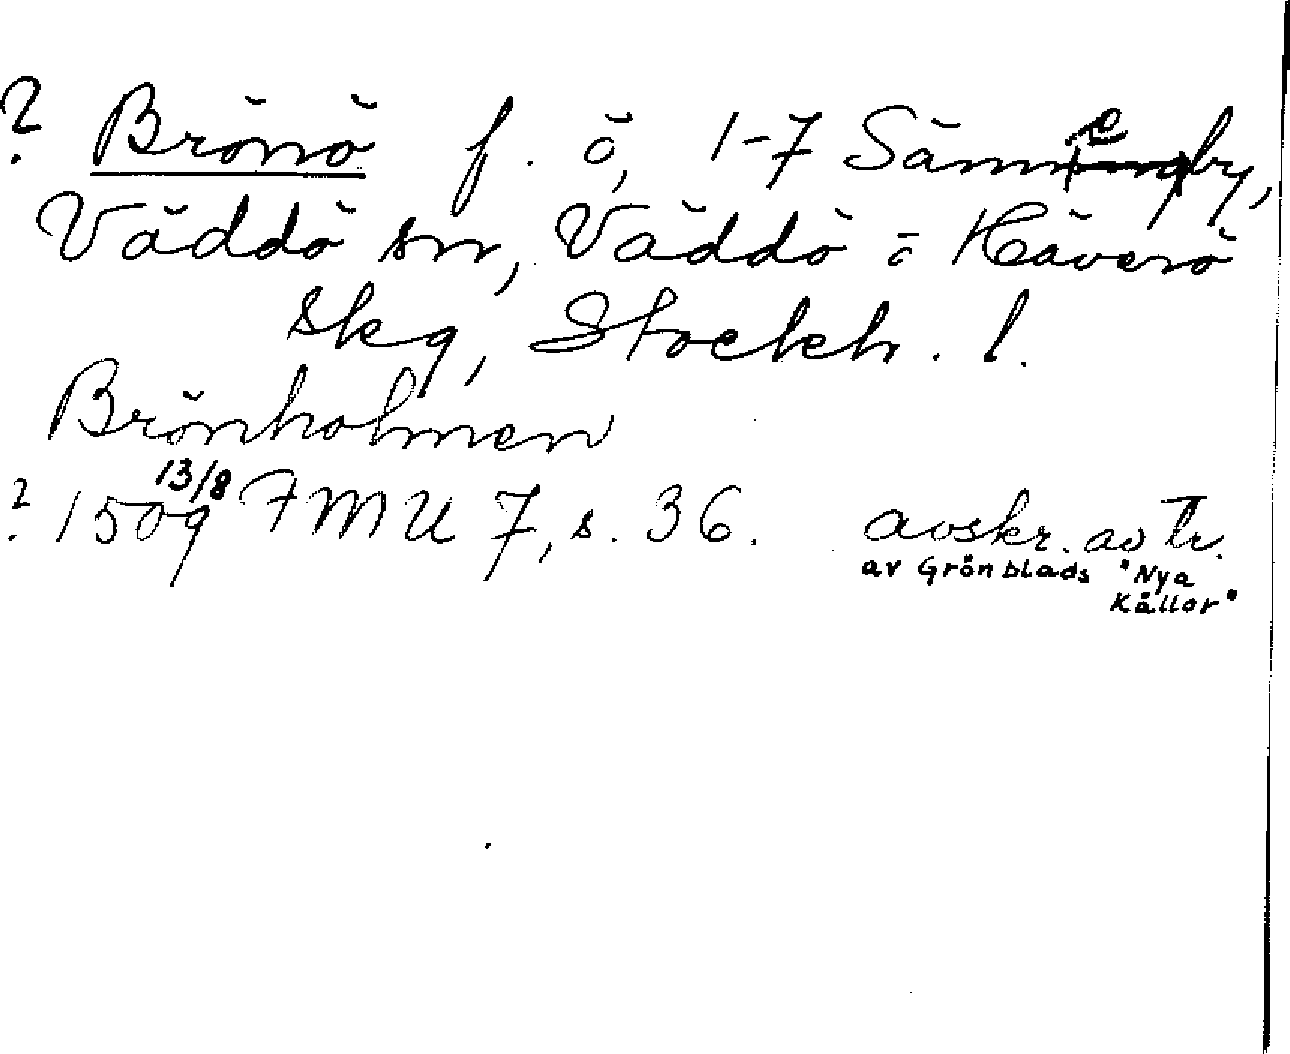 ? Brönö f. ö, 1-7 Sämneby,
Väddö sn, Väddö o Häverö
skg, Stockh. l.
Brönholmen
? 1509 13/8 FMU 7, s. 36. avskr. av tr.
av Grönblads "Nya
Källor"